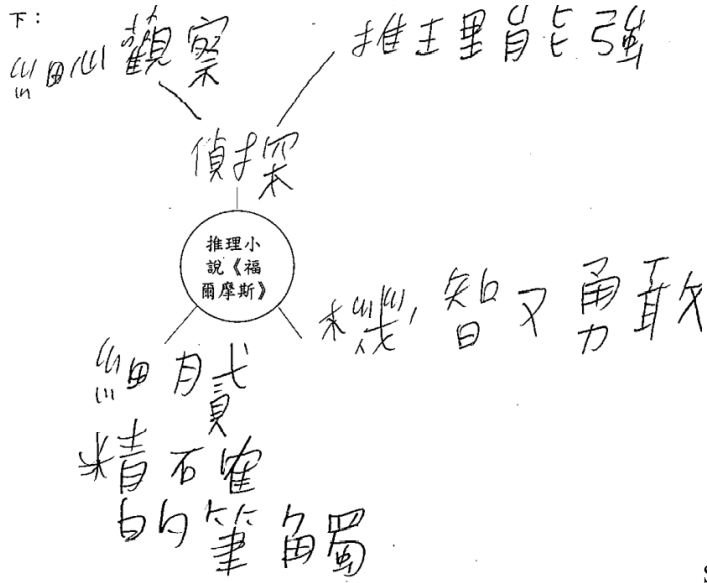 下：
細心觀察
推理能強
偵探
推理小
說《福
爾摩斯》
機智又勇敢
細膩
精確
的筆觸
S